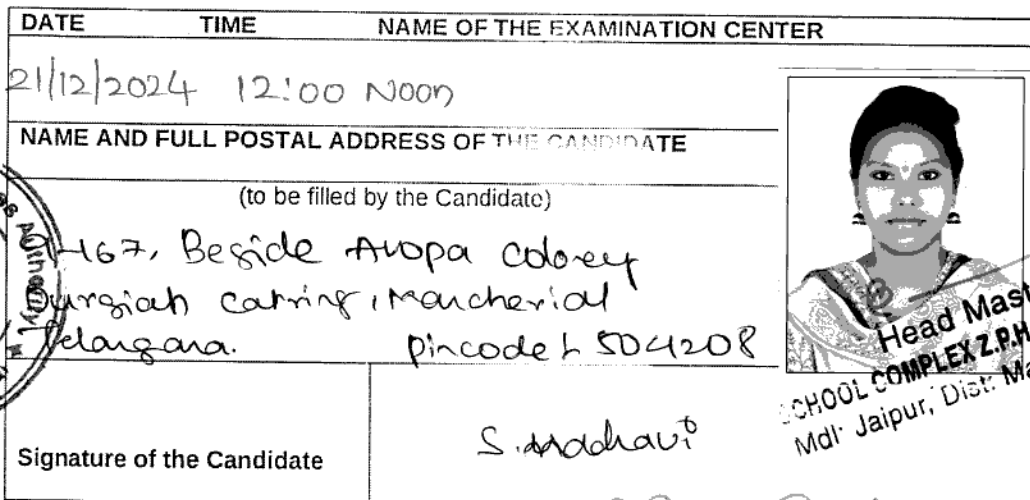 DATE TIME NAME OF THE EXAMINATION CENTER
21/12/2024 12:00 Noon
NAME AND FULL POSTAL ADDRESS OF THE CANDIDATE
(to be filled by the Candidate)
-167, Beside Avopa colony
Durgiah catring, Mancherial
Telangana. Pincode 504208
Signature of the Candidate S. Madhavi
Head Mast
SCHOOL COMPLEX Z.P.H
Mdl: Jaipur, Dist: Ma